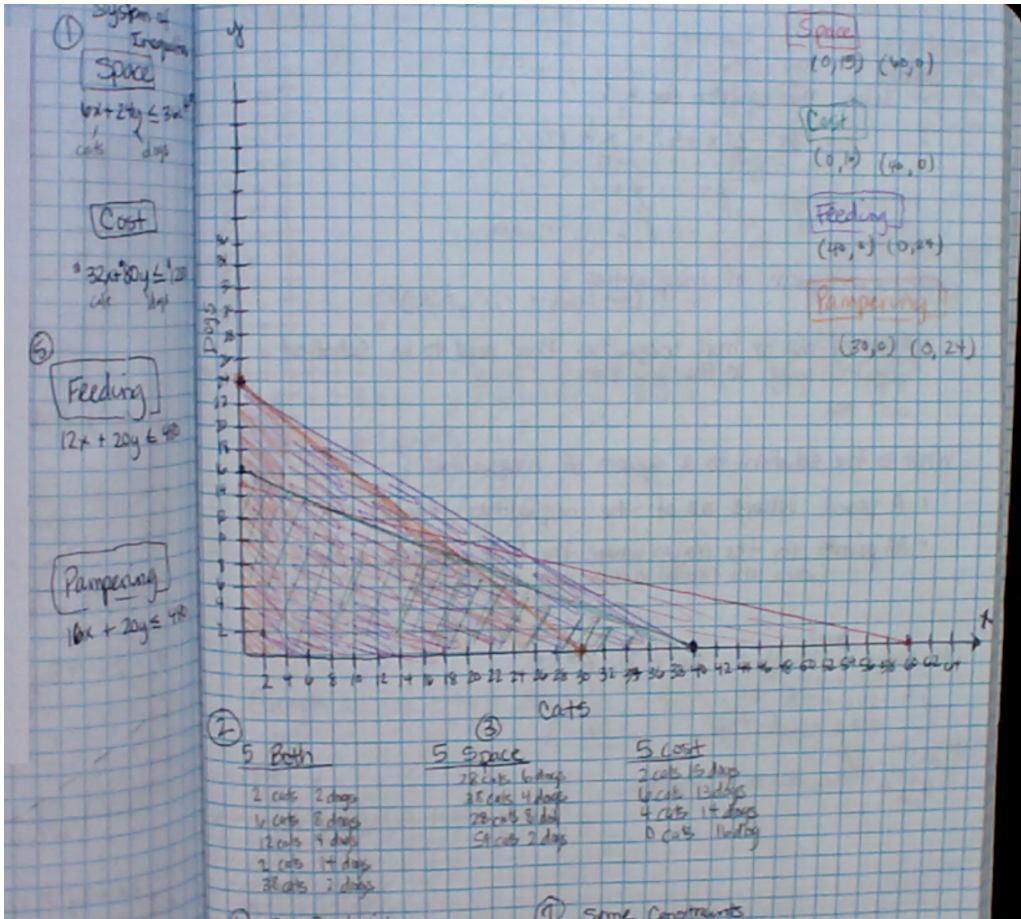 ① System of
Space
6x + 24y ≤ 360
cats dogs
Cost
cats dogs
⑤
Feeding
12x + 20y ≤ 480
Pampering
16x + 20y ≤ 480
y
Dogs
2 4 6 8 10 12 14 16 18 20 22 24 26 28 30 32 34 36 38 40 42 44 46 48 50 52 54 56 58 60 62 64
x
Cats
Space
(0,15) (60,0)
Cost
(0,16) (40,0)
Feeding
(40,0) (0,24)
Pampering
(30,0) (0,24)
②
5 Both
2 cats 2 dogs
6 cats 8 dogs
12 cats 4 dogs
2 cats 14 dogs
38 cats 2 dogs
③
5 Space
28 cats 6 dogs
38 cats 4 dogs
28 cats 8 dog
54 cats 2 dogs
5 Cost
2 cats 15 dogs
6 cats 13 dogs
4 cats 14 dogs
0 cats 16 dog
⑦ Some Constraints